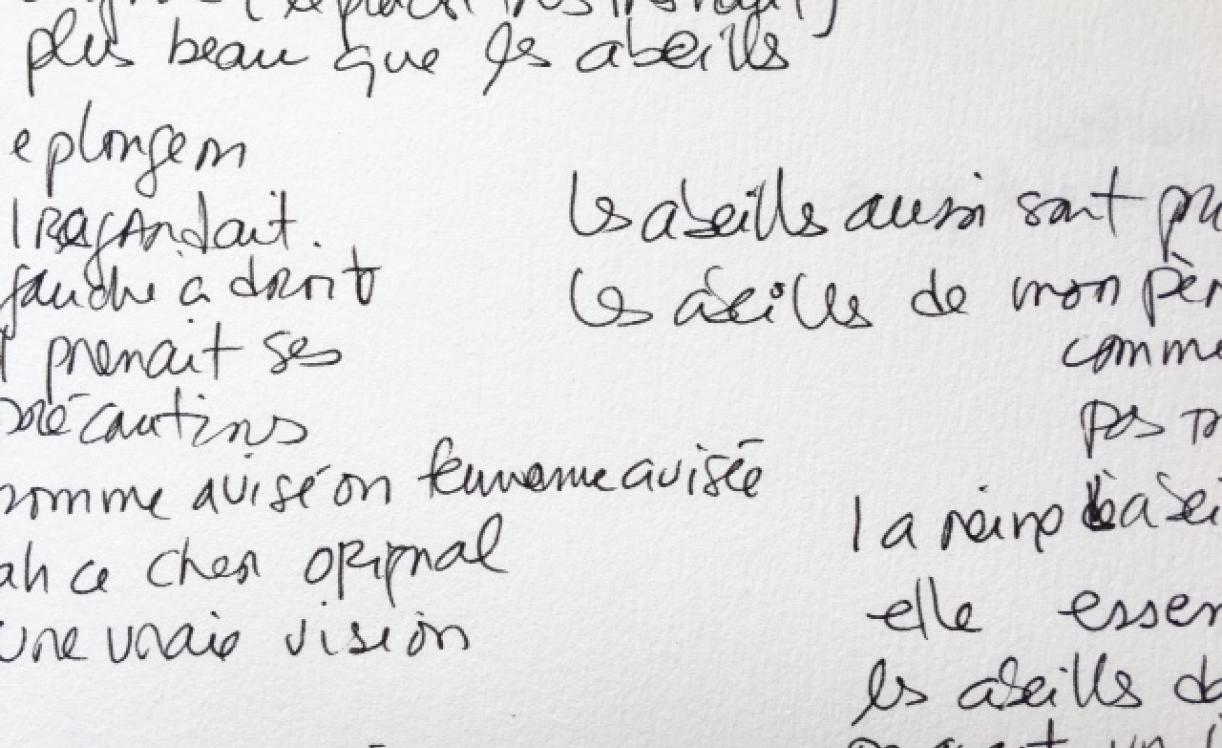 plus beau que les abeills
e plongeon
l regardait.
gauche à droit
prenait ses
précautions
homme avisé on femme avisée
ah ce cher original
une vraie vision
les abeills aussi sont
les abeilles de mon pèr
comme
pas
la reine
elle essen
les abeills da
un